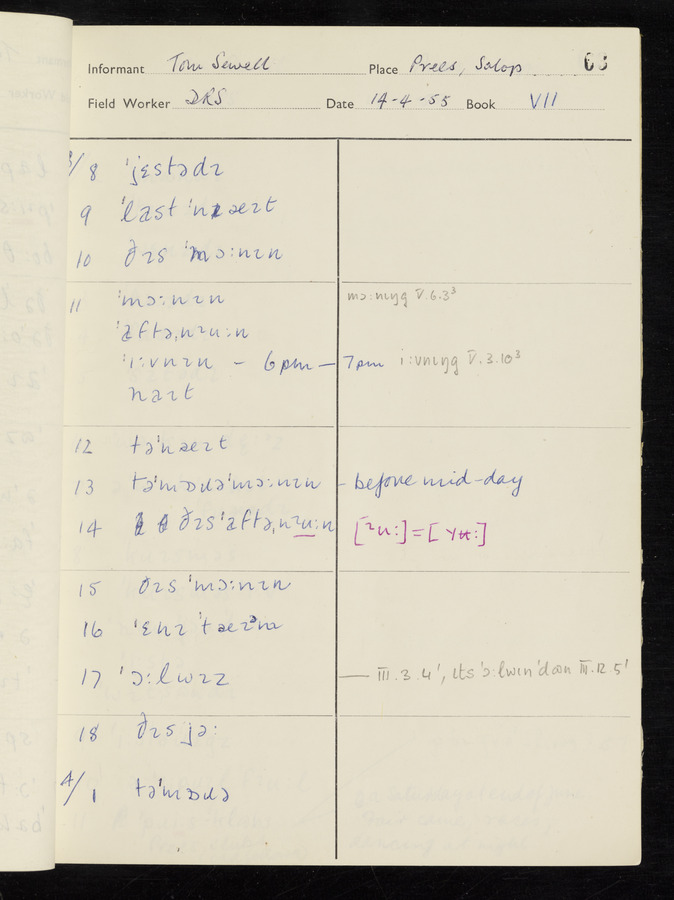 Informant Tom Sewell Place Prees, Salop 63
Field Worker DRS Date 14-4-55 Book VII
3/8 ˈjɛstədɪ
9 ˈlæst ˈnæɪt
10 ðɪs ˈmɔ:nɪn
11 ˈmɔ:nɪn mɔ:nɪŋg V.6.3³
ˈæftəˌnɪu:n
ˈi:vnɪn – 6pm – 7pm i:vnɪŋg V.3.10³
naɪt
12 təˈnæɪt
13 təˈmɒɹəˈmɔ:nɪn – before mid-day
14 ðɪsˈæftəˌnɪu:n [ɪu:]=[Yʉ:]
15 ðɪs ˈmɔ:nɪn
16 ˈɛnɪ ˈtæɪᵊm
17 ˈɔ:lwɪz — III.3.4', ɪts ˈɔ:lwɪn ˈdɒn III.12.5'
18 ðɪs jə:
4/1 təˈmɒɹə